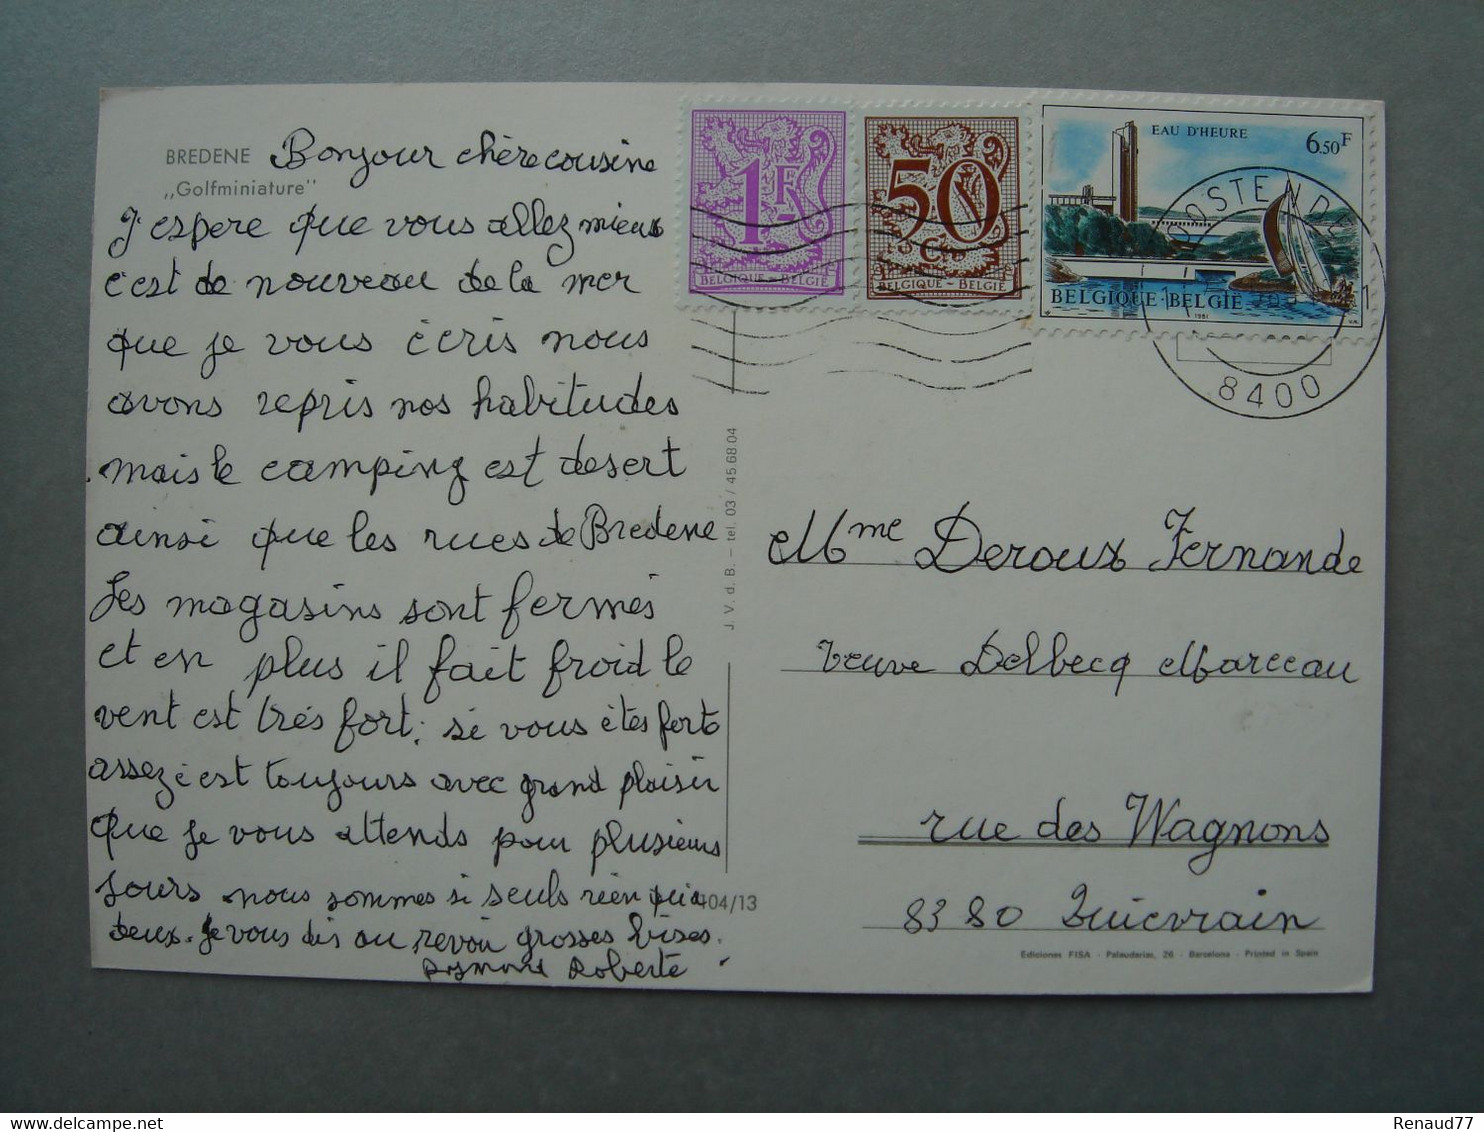 BREDENE
„Golfminiature"
Bonjour chère cousine
J'espere que vous allez mieux
c'est de nouveau de la mer
que je vous écris nous
avons repris nos habitudes
mais le camping est desert
ainsi que les rues de Bredene
Les magasins sont fermés
et en plus il fait froid le
vent est trés fort; si vous étes forte
assez c'est toujours avec grand plaisir
que je vous attends pour plusieurs
jours nous sommes si seuls rien qu'a
deux. Je vous dis au revoir grosses bises.
Roberte
404/13
J. V. d. B. – tel. 03 / 45.68.04
1F
BELGIQUE - BELGIË
50
C
BELGIQUE - BELGIË
EAU D'HEURE
6.50F
BELGIQUE-BELGIË
1981
OOSTENDE
8400
Mme Deroux Fernande
Veuve Delbecq Marceau
rue des Wagnons
8380 Quievrain
Ediciones FISA - Palaudarias, 26 - Barcelona - Printed in Spain
Renaud77